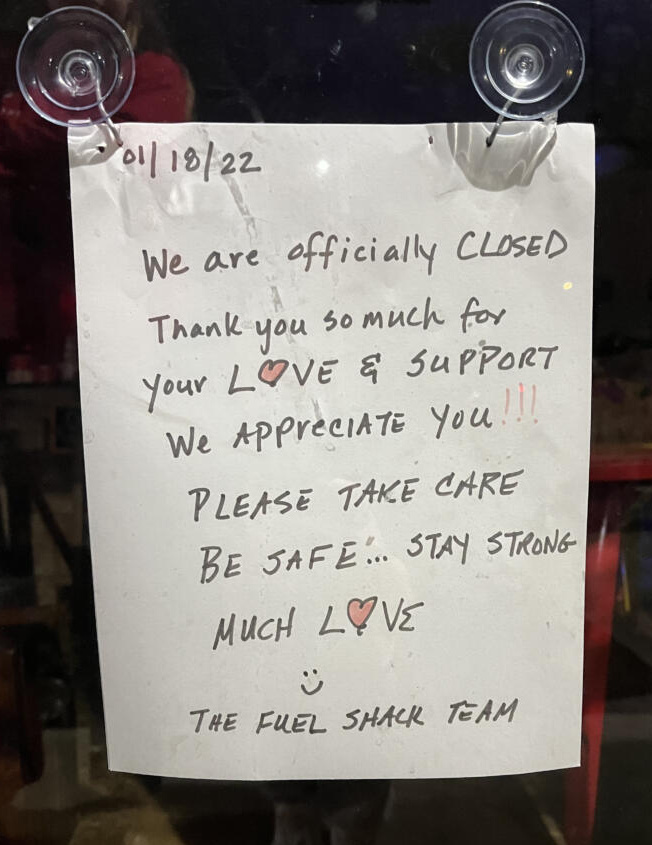 01/18/22
We are officially CLOSED
Thank you so much for
your L♥VE & SUPPORT
We APPreciATE You!!!
PLEASE TAKE CARE
BE SAFE... STAY STRONG
MUCH L♥VE
THE FUEL SHACK TEAM